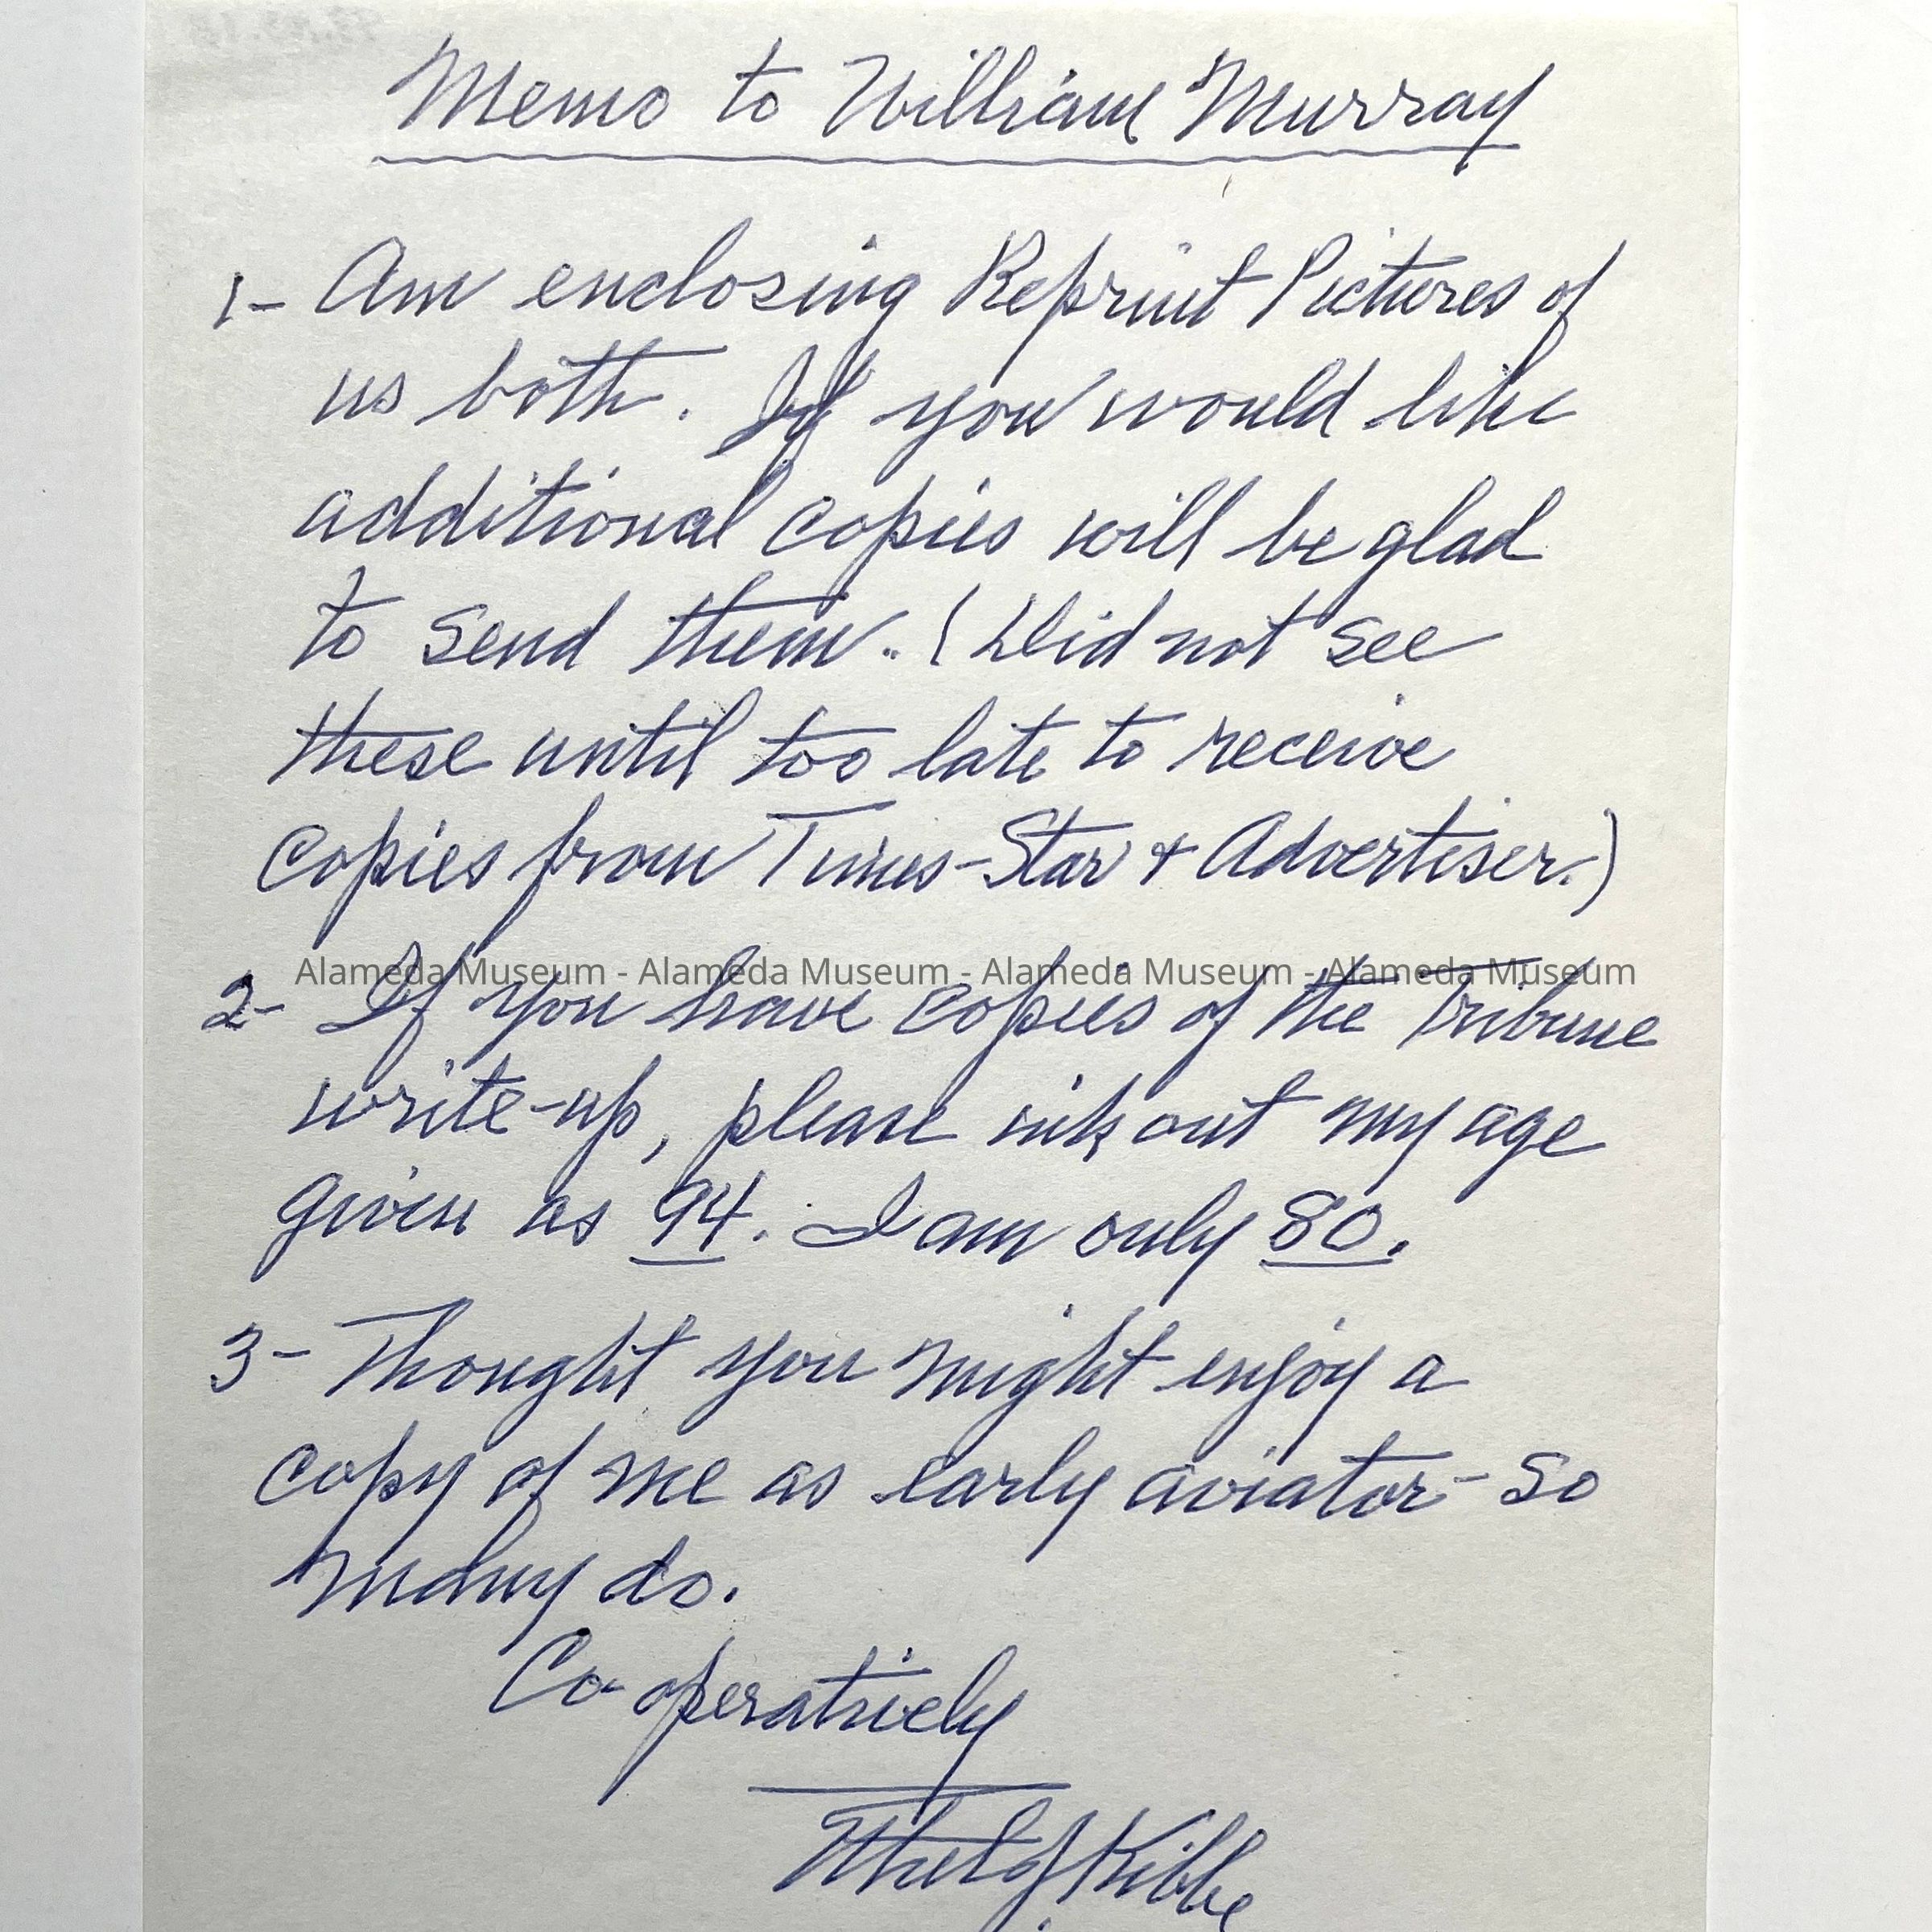 Memo to William Murray
1- Am enclosing Reprint Pictures of
us both. If you would like
additional copies will be glad
to send them. (Did not see
these until too late to receive
copies from Times-Star + Advertiser.)
Alameda Museum - Alameda Museum - Alameda Museum - Alameda Museum
2- If you have copies of the Tribune
write-up, please ink out my age
given as 94. I am only 80.
3- Thought you might enjoy a
copy of me as early aviator - so
many do.
Co-operatively
Kibbe